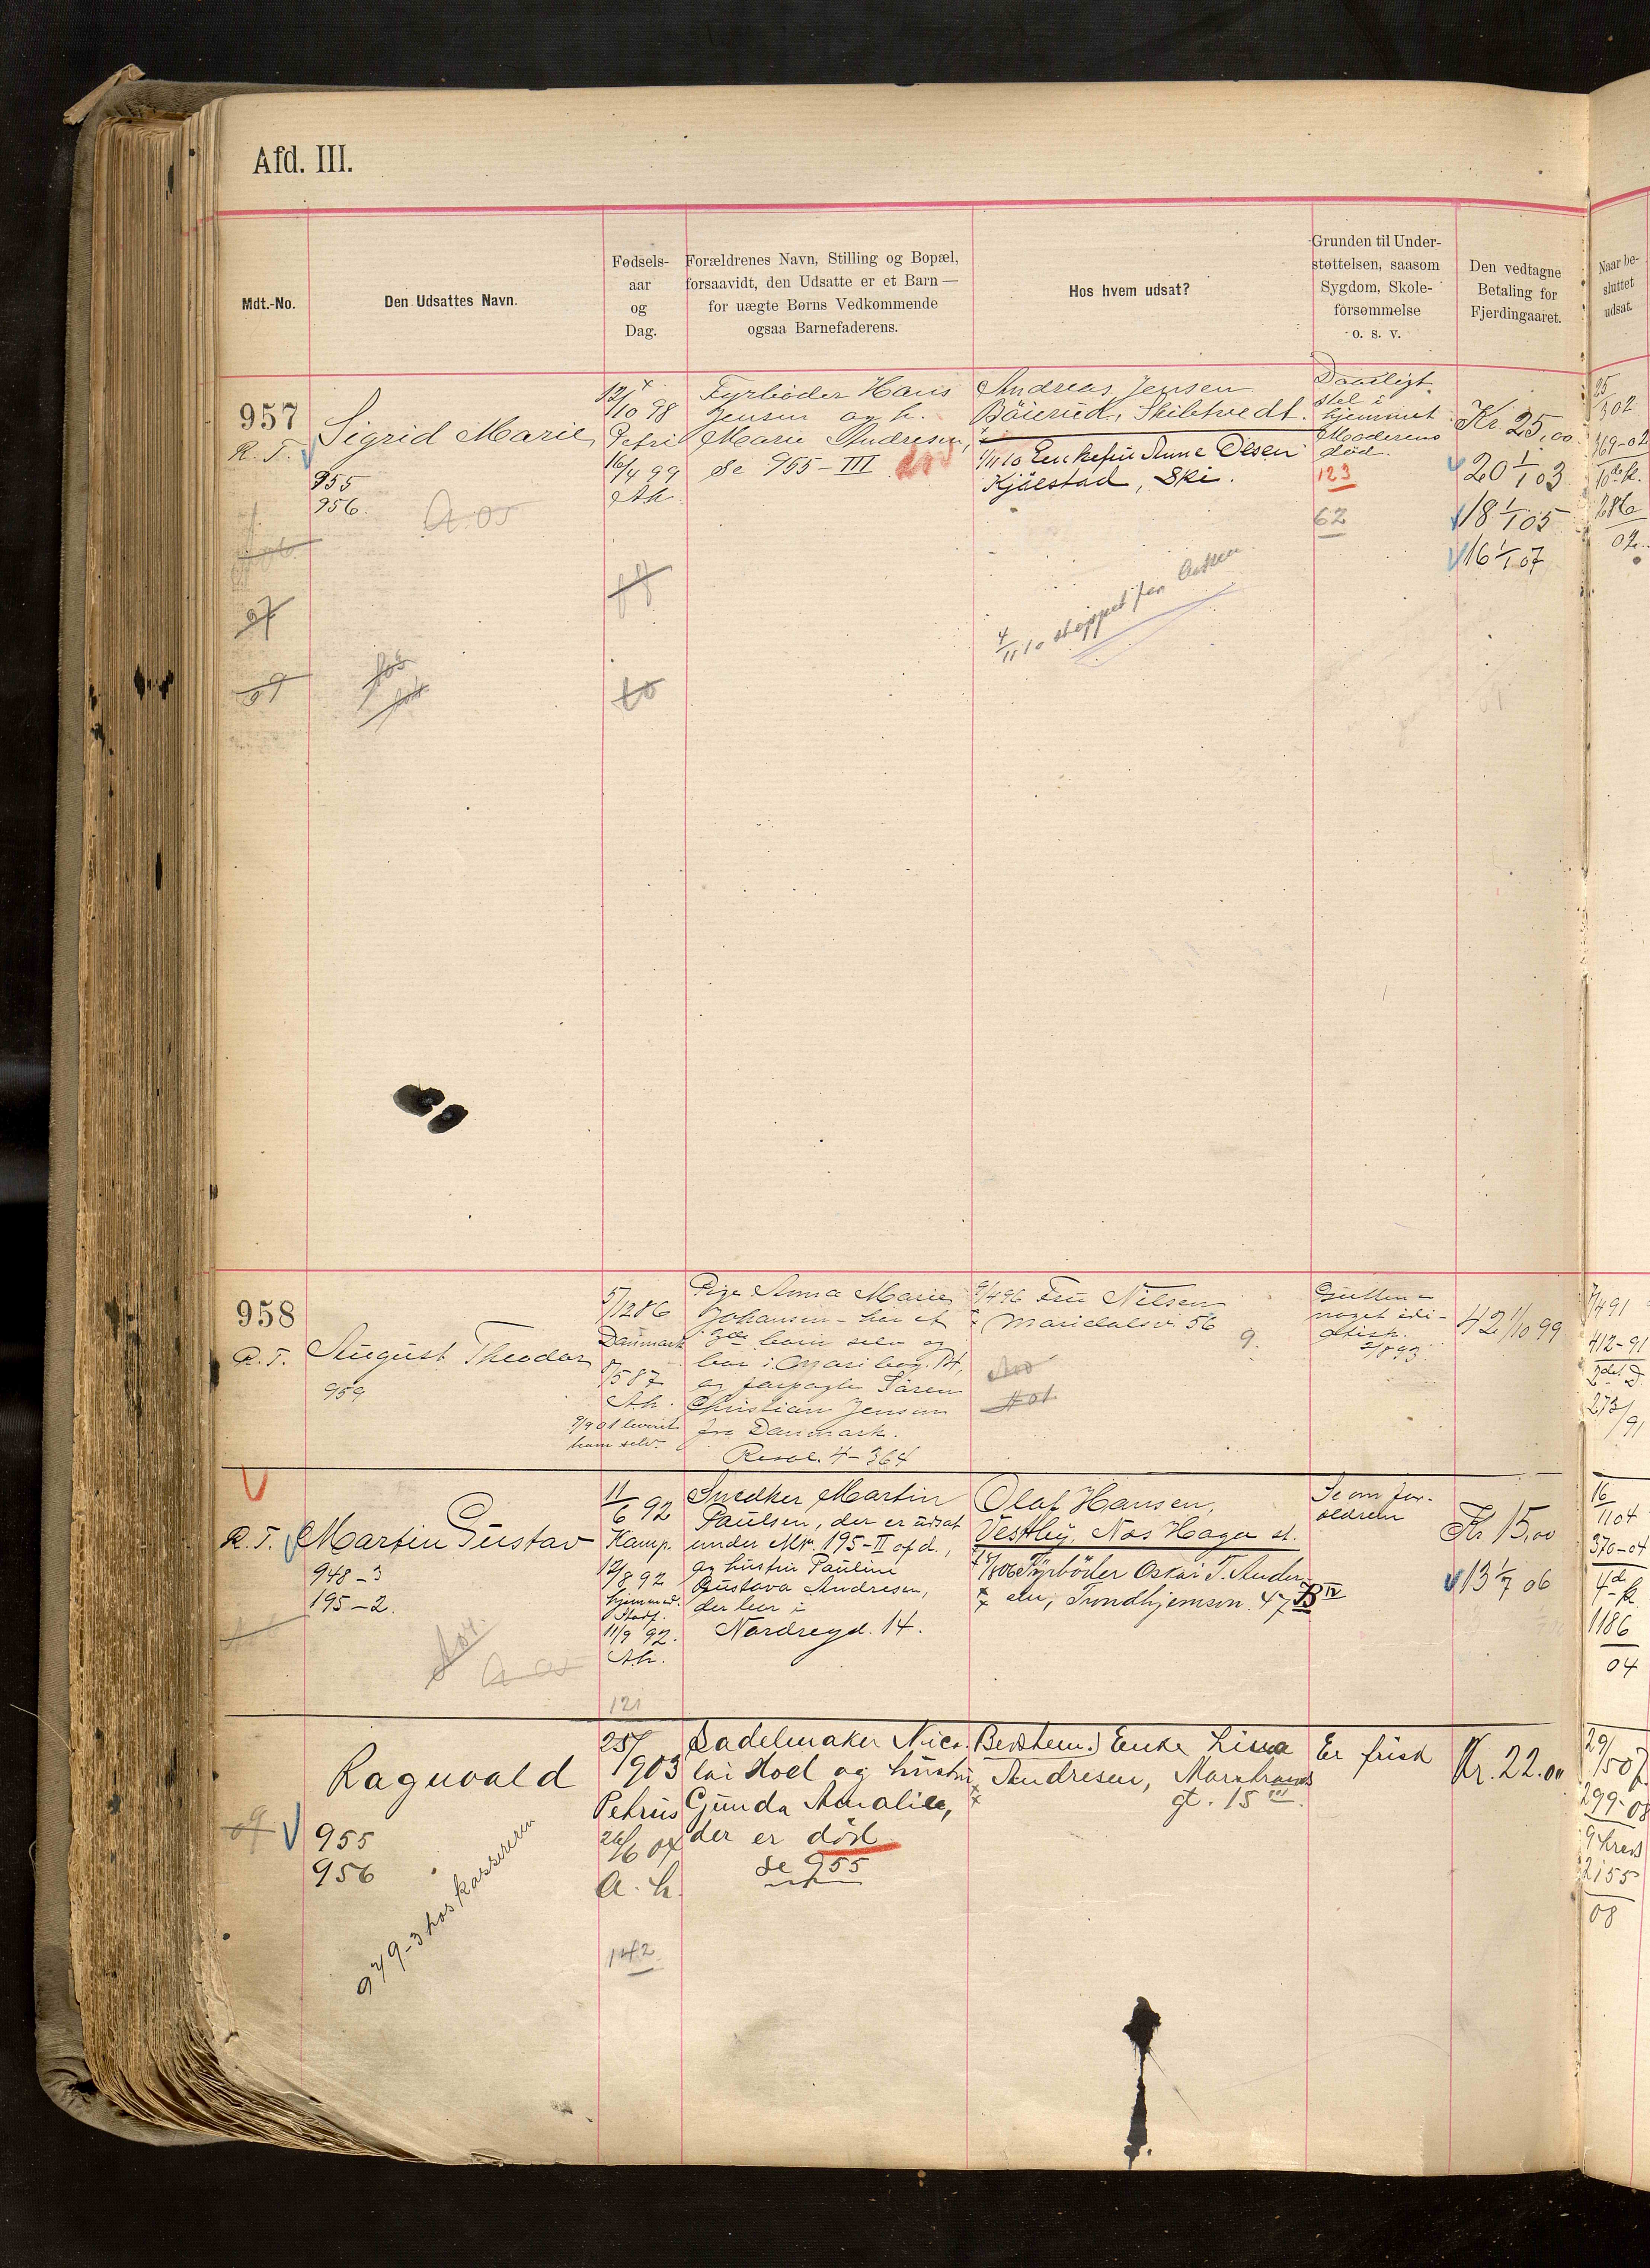 Afd. III.
Mdt.-No.
Den Udsattes Navn.
Fødsels-
aar
og
Dag.
Forældrenes Navn, Stilling og Bopæl,
forsaavidt, den Udsatte er et Barn —
for uægte Børns Vedkommende
ogsaa Barnefaderens.
Hos hvem udsat?
Grunden til Under-
støttelsen, saasom
Sygdom, Skole-
forsømmelse
o. s. v.
Den vedtagne
Betaling for
Fjerdingaaret.
Naar be-
sluttet
udsat.
957
R. T.
Sigrid Marie
955
956.
A.05
12/10 98
Petri
16/4 99
Ah
Fyrbøder Hans
Jensen og h.
Marie Andresen,
Se 955 - III
Andreas Jensen
Böierud, Skibtvedt.
1/11 10 Enkefru Anne Olsen
Kjölstad, Ski.
4/11 10 stoppet
Daarligt
stel i
hjemmet
Moderens
død.
123
62
Kr. 25,00
20 1/1 03
18 1/1 05
16 1/1 07
25
302
169-02
286
02
07
09
958
R. T.
August Theodor
959
5/12 86
Danmark
8/5 87
Ah.
7/9 01 leveret
ham selv.
Pige Anna Marie
Johansen - har et
barn selv og
bor i Maribog. 14,
og forpagter Sören
Christian Jensen
fra Danmark.
Resol. 4-364
9/4 96 Fru Nilsen
Maridalsv. 56
9.
Gutten er
noget idi-
otisk.
2/8 93.
42 1/10 99
7/4 91
412-91
273/91
R. T.
Martin Gustav
948-3
195-2.
11/6 92
Kamp.
12/8 92
hjemmed.
Stadf.
11/9 92.
Ah.
121
Snedker Martin
Paulsen, der er udsat
under Nr. 195-II afd.,
og hustru Pauline
Gustava Andresen,
der bor i
Nordregd. 14.
Olaf Hansen,
Vestby, Nos Haga st.
Fyrbøder Oskar T. Ander-
sen, Trondhjemsvn. 47 B IV
Se om for-
ældrene
Kr 15,00
13 1/7 06
16/11 04
370-04
1186
04
Ragnvald
07
955
956
979-3 hos kassereren
25/
1903
Petrus
26/6 04
A. h.
142
Sadelmaker Nico-
lai Hoel og hustru
Gunda Amalie,
der er død
se 955
Bedstem. Enke Lina
Andresen, Markveis
gt. 15 III.
Er frisk
Kr. 22.00
29/1 507
299-08
9 kreds
2155
08